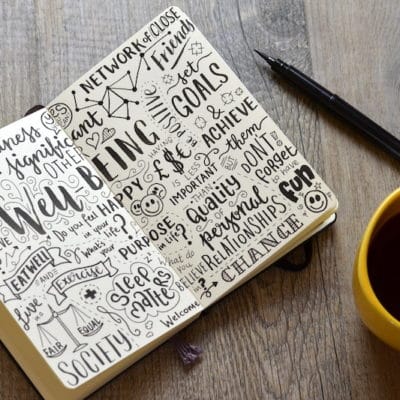 NETWORK of CLOSE
Friends
YES
significant
OTHER
Well BEING
set
GOALS
&
ACHIEVE
them
DON'T
forget
to have
fun
HAPPY?
HAVING
£$€
IS LESS
IMPORTANT
THAN
Quality
of
personal
RELATIONSHIPS
CHANGE
Do you feel
in your
life?
What's
your
PURPOSE
in life?
What do
you
BELIEVE
in?
EAT WELL
AND
Exercise
Sleep
matters
live
in a
FAIR
EQUAL
SOCIETY
Welcome